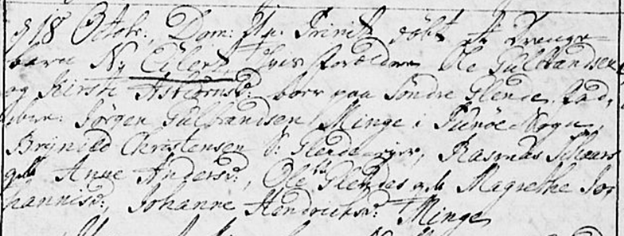 d 18 Octobr:, Dom: 21 p. Trinit: døbt et Drenge
barn Ny Eilert hvis forældre Ole Gulbrandsen
og Kirsti Asbiørnsd: boer paa Søndre Glende. Fad,
dere: Jørgen Gulbrandsen Minge i Tunøe Sogn,
Brynild Christensen S: Glende, Rasmus
gdb Anne Andersd:, Ole Glendes gdb Magrethe Jo,
hannisd:, Johanne Hendrichsd: Minge